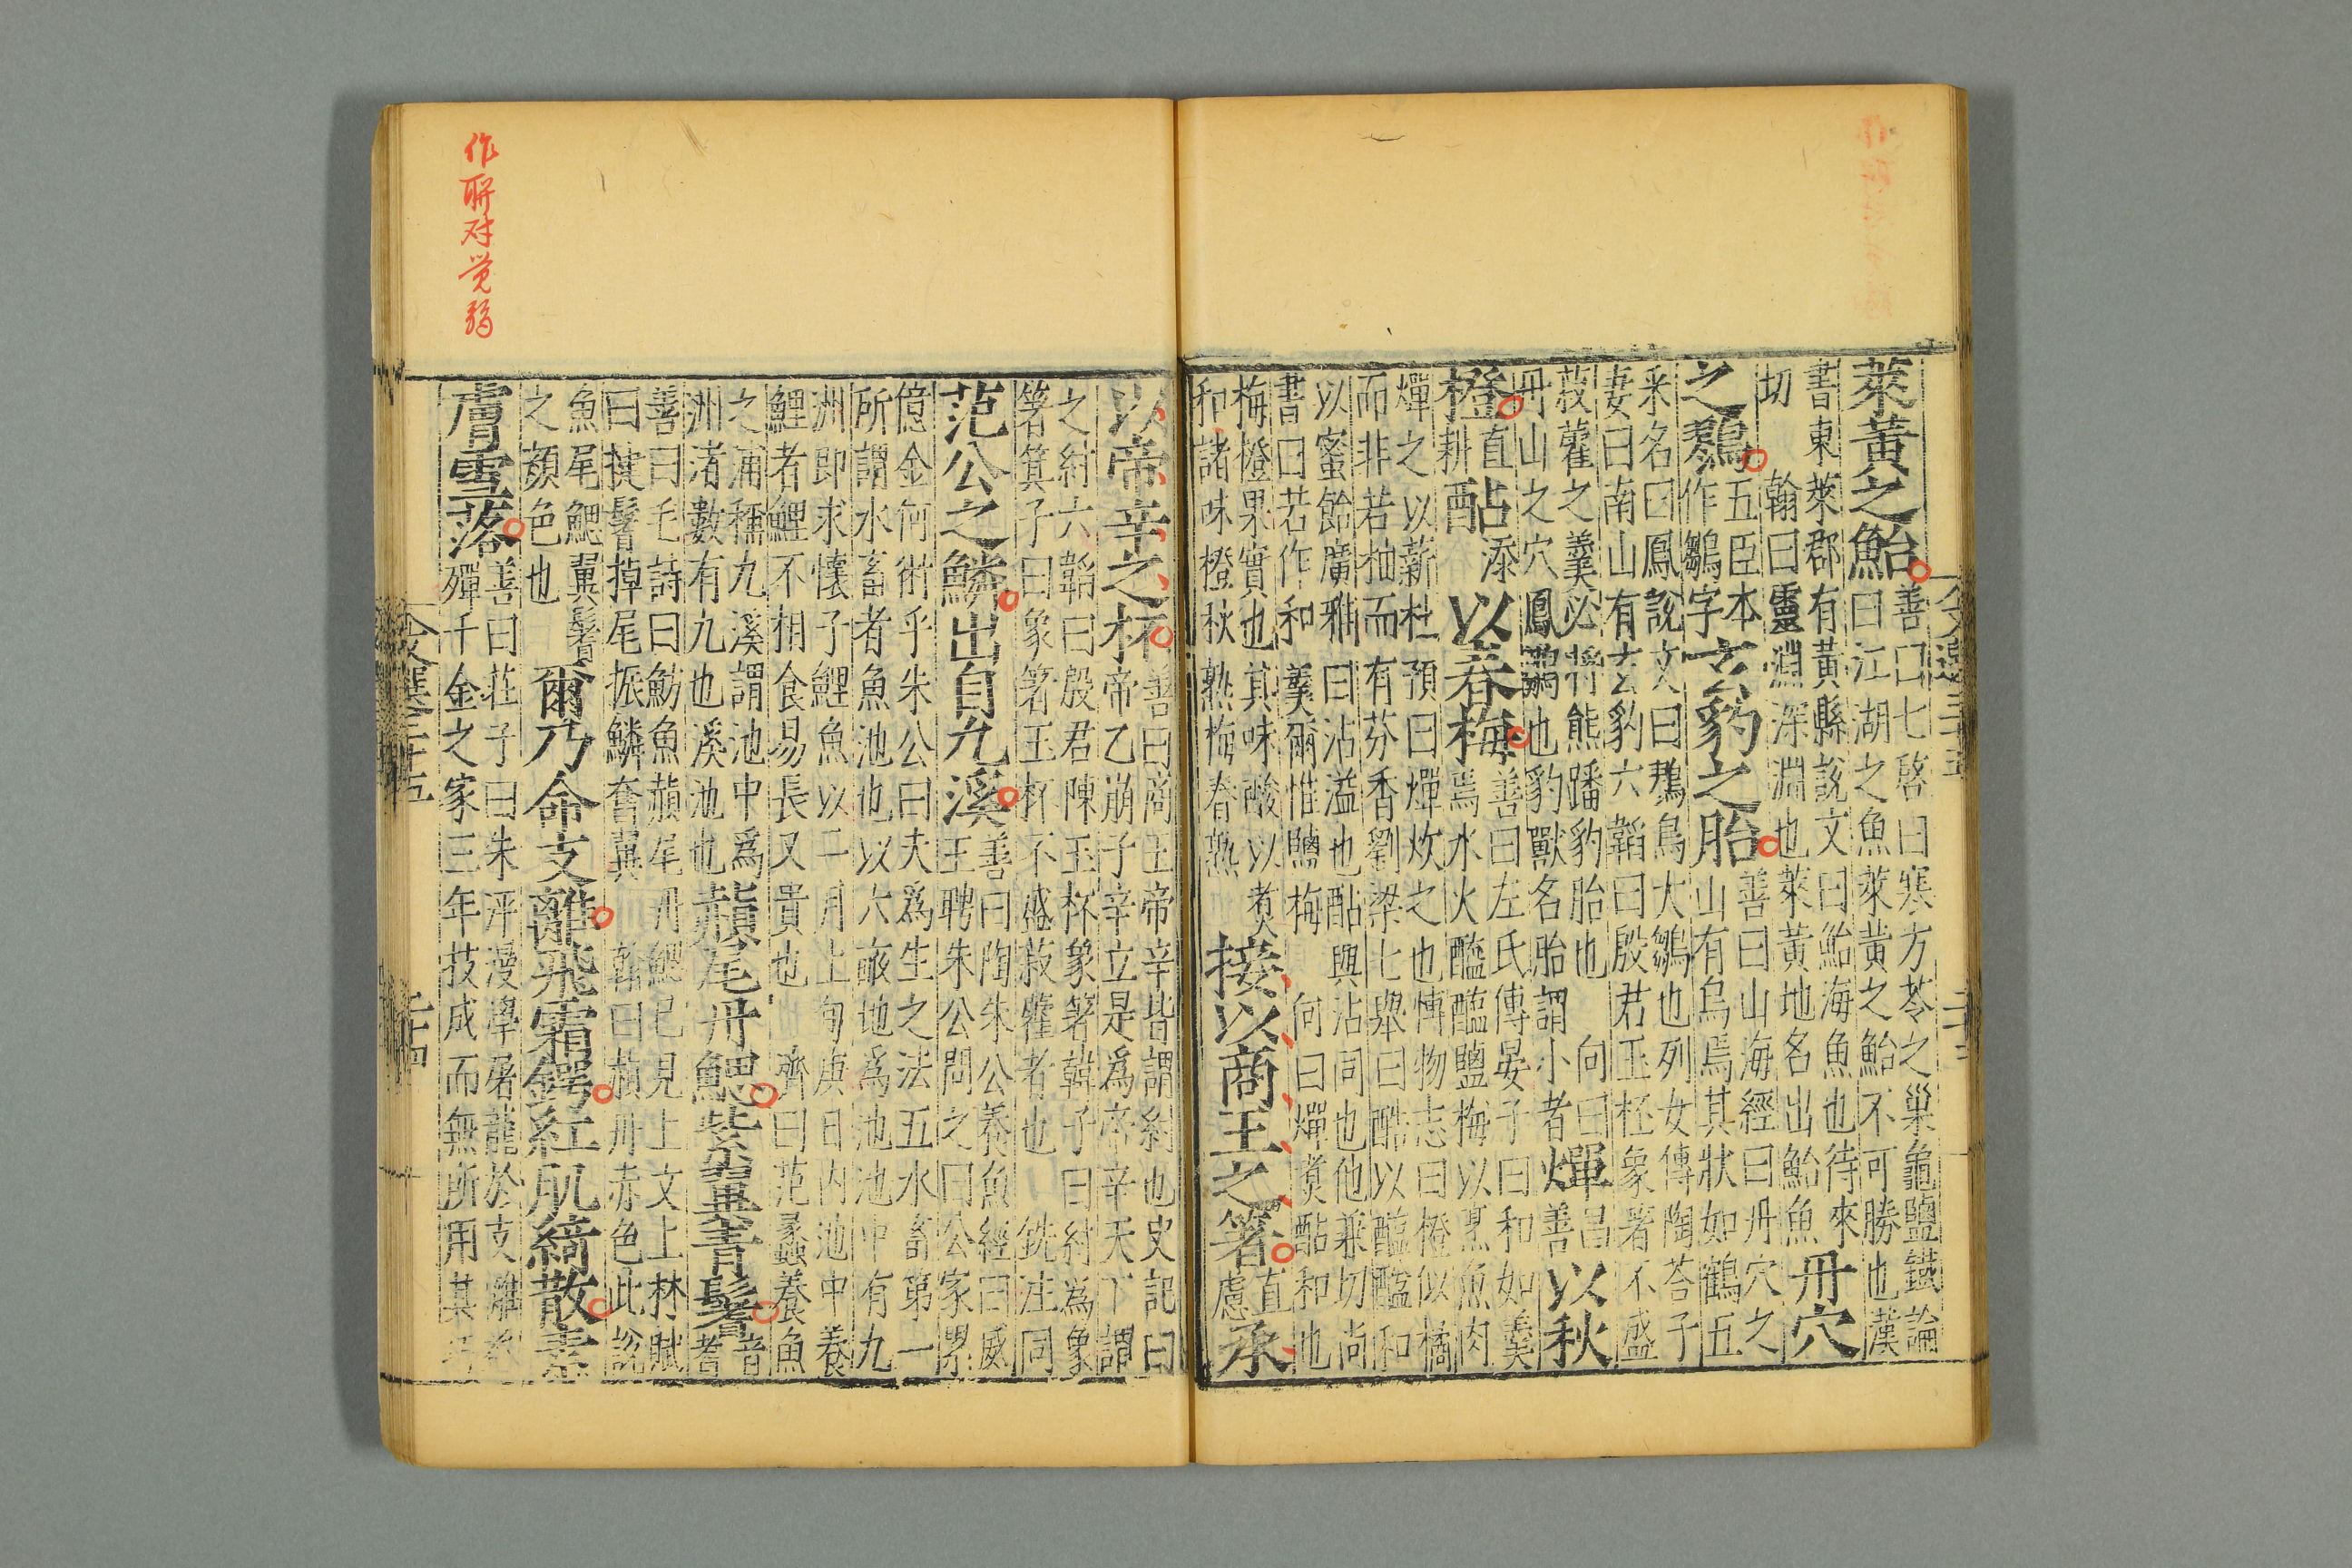 萊黃之鮐
善曰七啓曰寒方苓之巢龜鹽鐵論
曰江湖之魚萊黃之鮐不可勝也漢
書東萊郡有黃縣說文曰鮐海魚也待來
切 翰曰靈淵深淵也萊黃地名出鮐魚
丹穴
之鷚
五臣本
作鶵字
玄豹之胎
善曰山海經曰丹穴之
山有鳥焉其狀如鶴五
采名曰鳳說文曰鷚鳥大鶵也列女傳陶荅子
妻曰南山有玄豹六韜曰殷君玉杯象著不盛
菽藿之羹必將熊蹯豹胎也 向曰
丹山之穴鳳鷚也豹獸名胎謂小者
燀
昌
善
以秋
橙
直
耕
酟
添
以春梅
善曰左氏傳晏子曰和如羹
焉水火醯醢鹽梅以烹魚肉
燀之以薪杜預曰燀炊之也愽物志曰橙似橘
而非若柚而有芬香劉梁七舉曰酷以醯醢和
以蜜飴廣雅曰沾溢也酟與沾同也他兼切尚
書曰若作和羹爾惟鹽梅 向曰燀煑酟和也
梅橙果實也其味酸以煑
和諸味橙秋熟梅春熟
接以商王之箸
直
慮
承
以帝辛之杯
善曰商王帝辛皆謂紂也史記曰
帝乙崩子辛立是爲帝辛天下謂
之紂六韜曰殷君陳玉杯象箸韓子曰紂爲象
箸箕子曰象箸玉杯不盛菽藿者也 銑注同
范公之鱗出自九溪
善曰陶朱公養魚經曰威
王聘朱公問之曰公家累
億金何術乎朱公曰夫爲生之法五水畜第一
所謂水畜者魚池也以六畝地爲池池中有九
洲即求懷子鯉魚以二月上旬庚日内池中養
鯉者鯉不相食易長又貴也 濟曰范蠡養魚
之浦稱九溪謂池中爲
洲渚數有九也溪池也
頳尾丹鰓紫翼青鬐
音
耆
善曰毛詩曰魴魚頳尾丹鰓已見上文上林賦
曰揵鬐掉尾振鱗奮翼 翰曰頳丹赤色此說
魚尾鰓翼鬐
之顏色也
爾乃命支離飛霜鍔紅肌綺散素
膚雪落
善曰莊子曰朱泙漫學屠龍於支離
殫千金之家三年技成而無所用其巧
作聯对觉弱